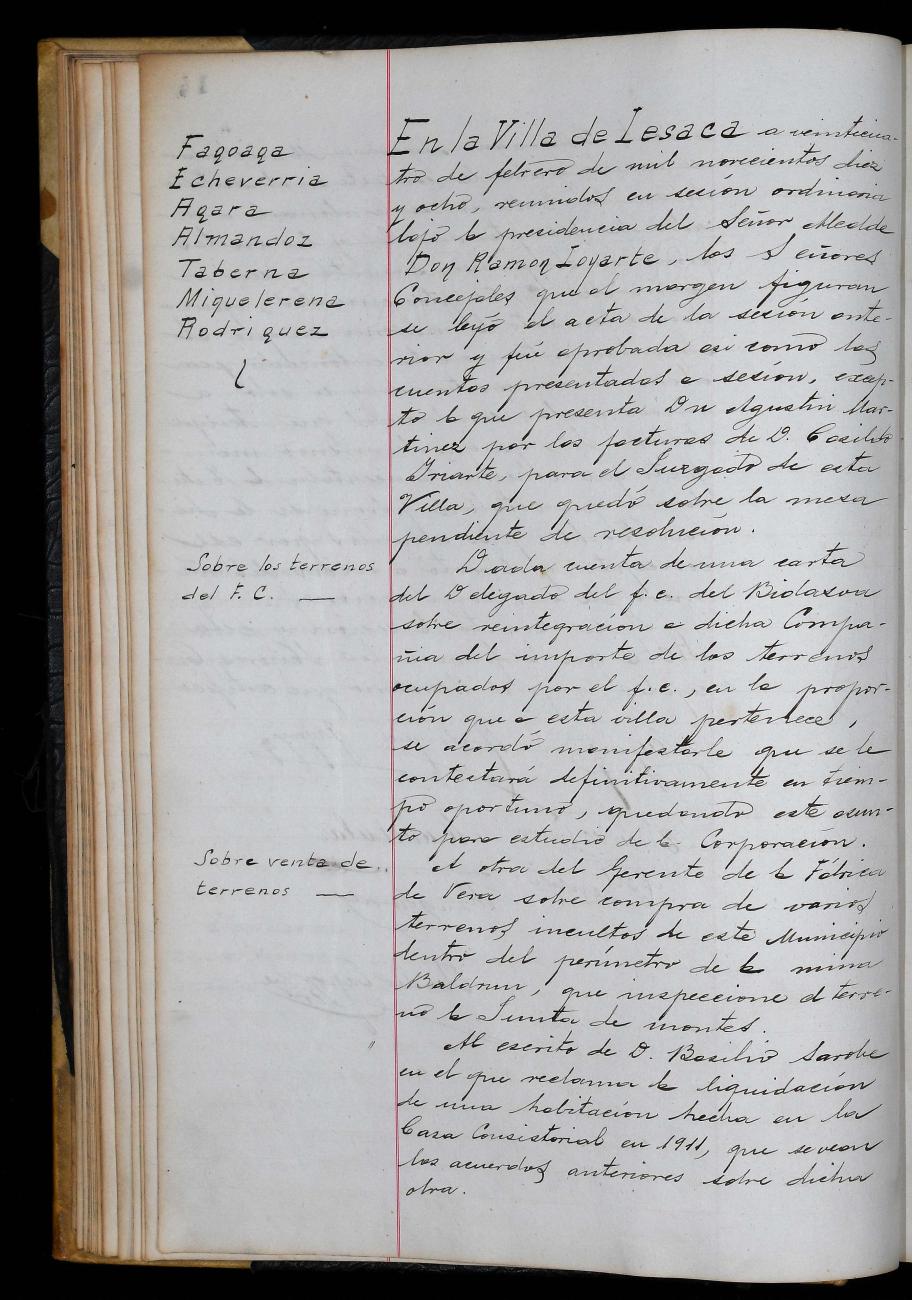 Fagoaga
Echeverria
Agara
Almandoz
Taberna
Miquelerena
Rodriguez
En la Villa de Lesaca a veinticua-
tro de febrero de mil novecientos diez
y ocho, reunidos en sesión ordinaria
bajo la presidencia del Señor Alcalde
Don Ramon Loyarte, los Señores
Concejales que al margen figuran
se leyó el acta de la sesión ante-
rior y fué aprobada asi como las
cuentas presentadas a sesión, excep-
to la que presenta Dn Agustin Mar-
tinez por las facturas de D. Casildo
Iriarte, para el Juzgado de esta
Villa, que quedó sobre la mesa
pendiente de resolución.
Sobre los terrenos
del F. C. —
Dada cuenta de una carta
del Delegado del f.c. del Bidasoa
sobre reintegración a dicha Compa-
ñia del importe de los terrenos
ocupados por el f.c., en la propor-
ción que a esta villa pertenece,
se acordó manifestarle que se le
contestará definitivamente en tiem-
po oportuno, quedando este asun-
to para estudio de la Corporación.
Sobre venta de
terrenos —
A otra del Gerente de la Fábrica
de Vera sobre compra de varios
terrenos incultos de este Municipio
dentro del perimetro de la mina
Baldrun, que inspeccione el terre-
no la Junta de montes.
Al escrito de D. Basilio Sarobe
en el que reclama la liquidación
de una habitación hecha en la
Casa Consistorial en 1911, que se vean
los acuerdos anteriores sobre dicha
obra.